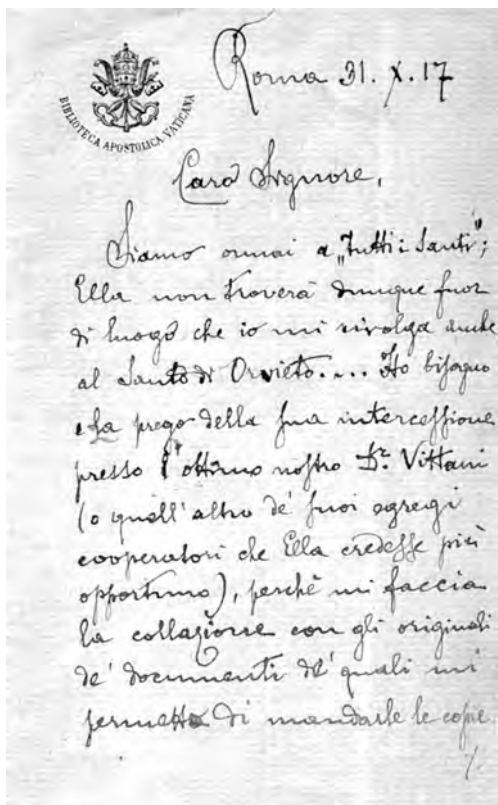 BIBLIOTECA APOSTOLICA VATICANA
Roma 31. X. 17
Caro Signore,
Siamo ormai a „Tutti i Santi";
Ella non troverà dunque fuor
di luogo che io mi rivolga anche
al Santo di Orvieto.... Ho bisogno
e La prego della sua intercessione
presso l'ottimo nostro Dr. Vittani
(o quell'altro de' suoi egregi
cooperatori che Ella credesse più
opportuno), perchè mi faccia
la collazione con gli originali
de' documenti de' quali mi
permetto di mandarle le copie.
./.